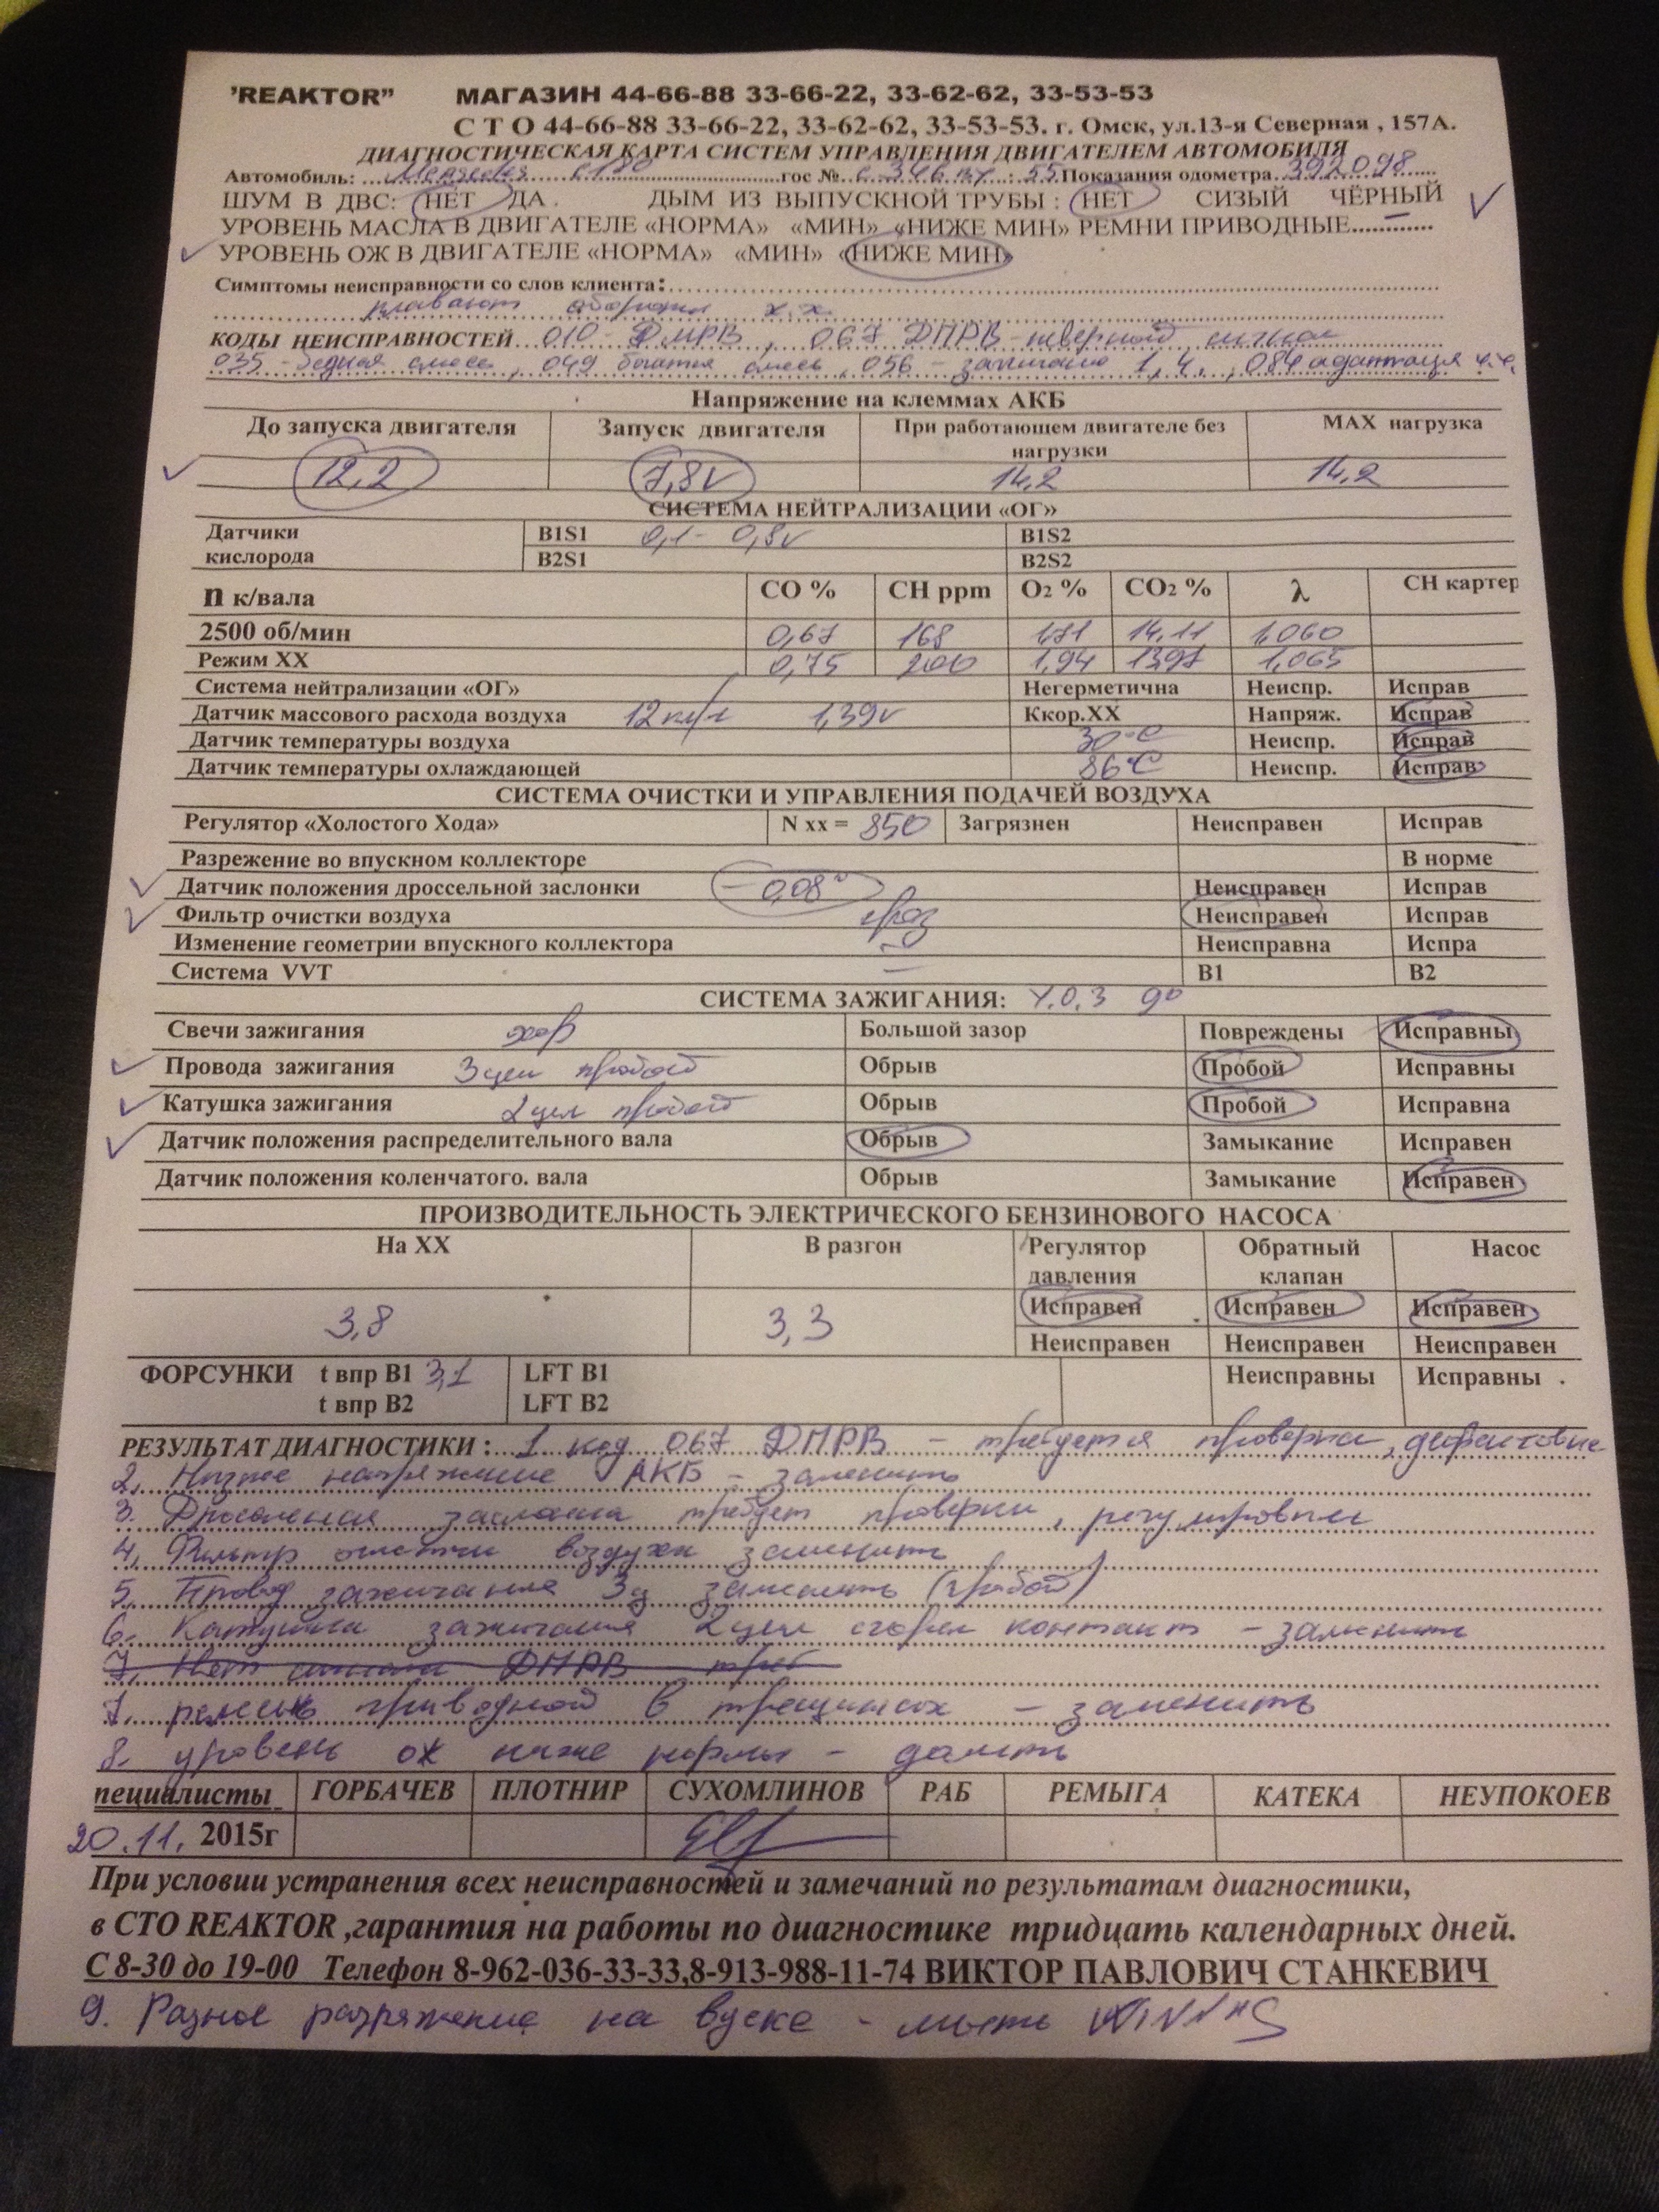 ’REAKTOR” МАГАЗИН 44-66-88 33-66-22, 33-62-62, 33-53-53
С Т О 44-66-88 33-66-22, 33-62-62, 33-53-53. г. Омск, ул.13-я Северная , 157А.
ДИАГНОСТИЧЕСКАЯ КАРТА СИСТЕМ УПРАВЛЕНИЯ ДВИГАТЕЛЕМ АВТОМОБИЛЯ
Автомобиль: Мерседес с180 гос № 55 Показания одометра 392098
ШУМ В ДВС: НЕТ ДА . ДЫМ ИЗ ВЫПУСКНОЙ ТРУБЫ : НЕТ СИЗЫЙ ЧЁРНЫЙ
УРОВЕНЬ МАСЛА В ДВИГАТЕЛЕ «НОРМА» «МИН» «НИЖЕ МИН» РЕМНИ ПРИВОДНЫЕ
УРОВЕНЬ ОЖ В ДВИГАТЕЛЕ «НОРМА» «МИН» «НИЖЕ МИН»
Симптомы неисправности со слов клиента:
плавают обороты х.х.
КОДЫ НЕИСПРАВНОСТЕЙ 010- ДМРВ, 067 ДПРВ- сигнал
035 - бедная смесь, 049 богатая смесь, 056 - зажигание 1,4, 084 адаптация х.х.
Напряжение на клеммах АКБ
До запуска двигателя Запуск двигателя При работающем двигателе без нагрузки МАХ нагрузка
12,2 7,8v 14,2 14,2
СИСТЕМА НЕЙТРАЛИЗАЦИИ «ОГ»
Датчики B1S1 0,1- 0,8v B1S2
кислорода B2S1 B2S2
n к/вала CO % CH ppm O2 % CO2 % λ СН картер
2500 об/мин 0,67 168 1,71 14,11 1,060
Режим ХХ 0,75 200 1,94 13,97 1,065
Система нейтрализации «ОГ» Негерметична Неиспр. Исправ
Датчик массового расхода воздуха 12 кг/г 1,39v Ккор.ХХ Напряж. Исправ
Датчик температуры воздуха 30°C Неиспр. Исправ
Датчик температуры охлаждающей 86°C Неиспр. Исправ
СИСТЕМА ОЧИСТКИ И УПРАВЛЕНИЯ ПОДАЧЕЙ ВОЗДУХА
Регулятор «Холостого Хода» N xx = 850 Загрязнен Неисправен Исправ
Разрежение во впускном коллекторе В норме
Датчик положения дроссельной заслонки -0,08° Неисправен Исправ
Фильтр очистки воздуха Неисправен Исправ
Изменение геометрии впускного коллектора Неисправна Испра
Система VVT B1 B2
СИСТЕМА ЗАЖИГАНИЯ: У.О.З 9°
Свечи зажигания хор Большой зазор Повреждены Исправны
Провода зажигания 3 цил пробой Обрыв Пробой Исправны
Катушка зажигания 2 цил пробой Обрыв Пробой Исправна
Датчик положения распределительного вала Обрыв Замыкание Исправен
Датчик положения коленчатого. вала Обрыв Замыкание Исправен
ПРОИЗВОДИТЕЛЬНОСТЬ ЭЛЕКТРИЧЕСКОГО БЕНЗИНОВОГО НАСОСА
На ХХ В разгон Регулятор давления Обратный клапан Насос
3,8 3,3 Исправен Исправен Исправен
Неисправен Неисправен Неисправен
ФОРСУНКИ t впр B1 3,1 LFT B1 Неисправны Исправны .
t впр B2 LFT B2
РЕЗУЛЬТАТ ДИАГНОСТИКИ : 1 код 067 ДПРВ - требуется проверка,
2. Низкое напряжение АКБ - заменить
3. Дроссельная заслонка требует проверки, регулировки
4. Фильтр очистки воздуха заменить
5. Провод зажигания 3ц заменить (пробой)
6. Катушка зажигания 2 цил сгорел контакт - заменить
7. Нет сигнала ДПРВ треб
7. ремень приводной в трещинах - заменить
8. уровень ож ниже нормы - долить
пециалисты ГОРБАЧЕВ ПЛОТНИР СУХОМЛИНОВ РАБ РЕМЫГА КАТЕКА НЕУПОКОЕВ
20.11. 2015г
При условии устранения всех неисправностей и замечаний по результатам диагностики,
в СТО REAKTOR ,гарантия на работы по диагностике тридцать календарных дней.
С 8-30 до 19-00 Телефон 8-962-036-33-33,8-913-988-11-74 ВИКТОР ПАВЛОВИЧ СТАНКЕВИЧ
9. Разное разряжение на вуске - мыть WINNS